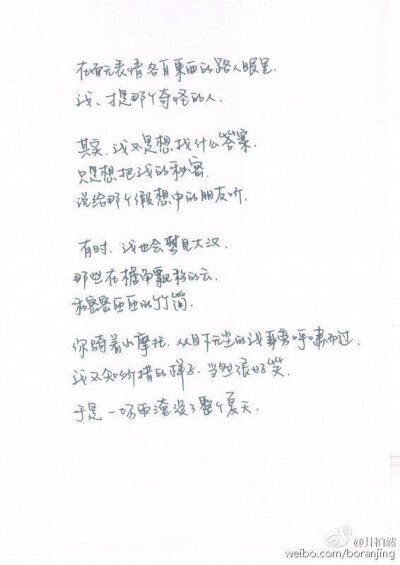 在面无表情各有东西的路人眼里,
我、才是那个奇怪的人.
其实、我又是想找什么答案,
只是想把我的秘密
说给那个假想中的朋友听.
有时、我也会梦见大汉.
那些在檐角飘移的云.
和密密匝匝的竹简.
你骑着小摩托、从目下无尘的我耳旁呼啸而过.
我又如何猜的样子、当然很好笑.
于是一场雨淹没了整个夏天.
@井柏然
weibo.com/boranjing